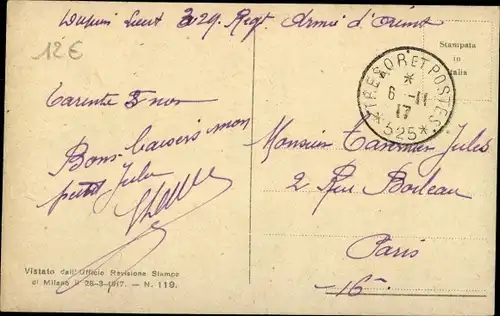 Lieut 329. Regt. Armée d'Orient
12€
Stampata
in
Italia
TRESOR ET POSTES
*
6-11
17
* 525 *
Tarente 5 nov
Bons baisers mon
petit Jules
Monsieur Tavernier Jules
2 Rue Boileau
Paris
16e
Vistato dall'Ufficio Revisione Stampa
di Milano il 28-3-1917. — N. 119.